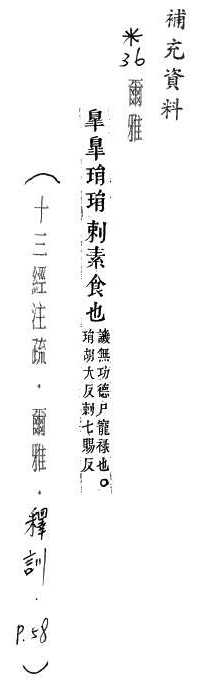 補充資料
*36 爾雅
皐皐琄琄刺素食也
譏無功德尸寵祿也。
琄胡犬反刺七賜反
(十三經注疏.爾雅.釋訓.P.58)